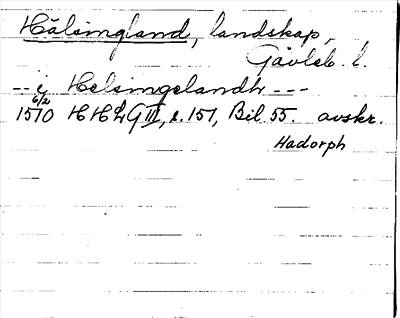 Hälsingland, landskap,
Gävleb. l.
-- ij Helsingelandh ---
6/2
1510 HHLG III, s. 151, Bil. 55. avskr.
Hadorph